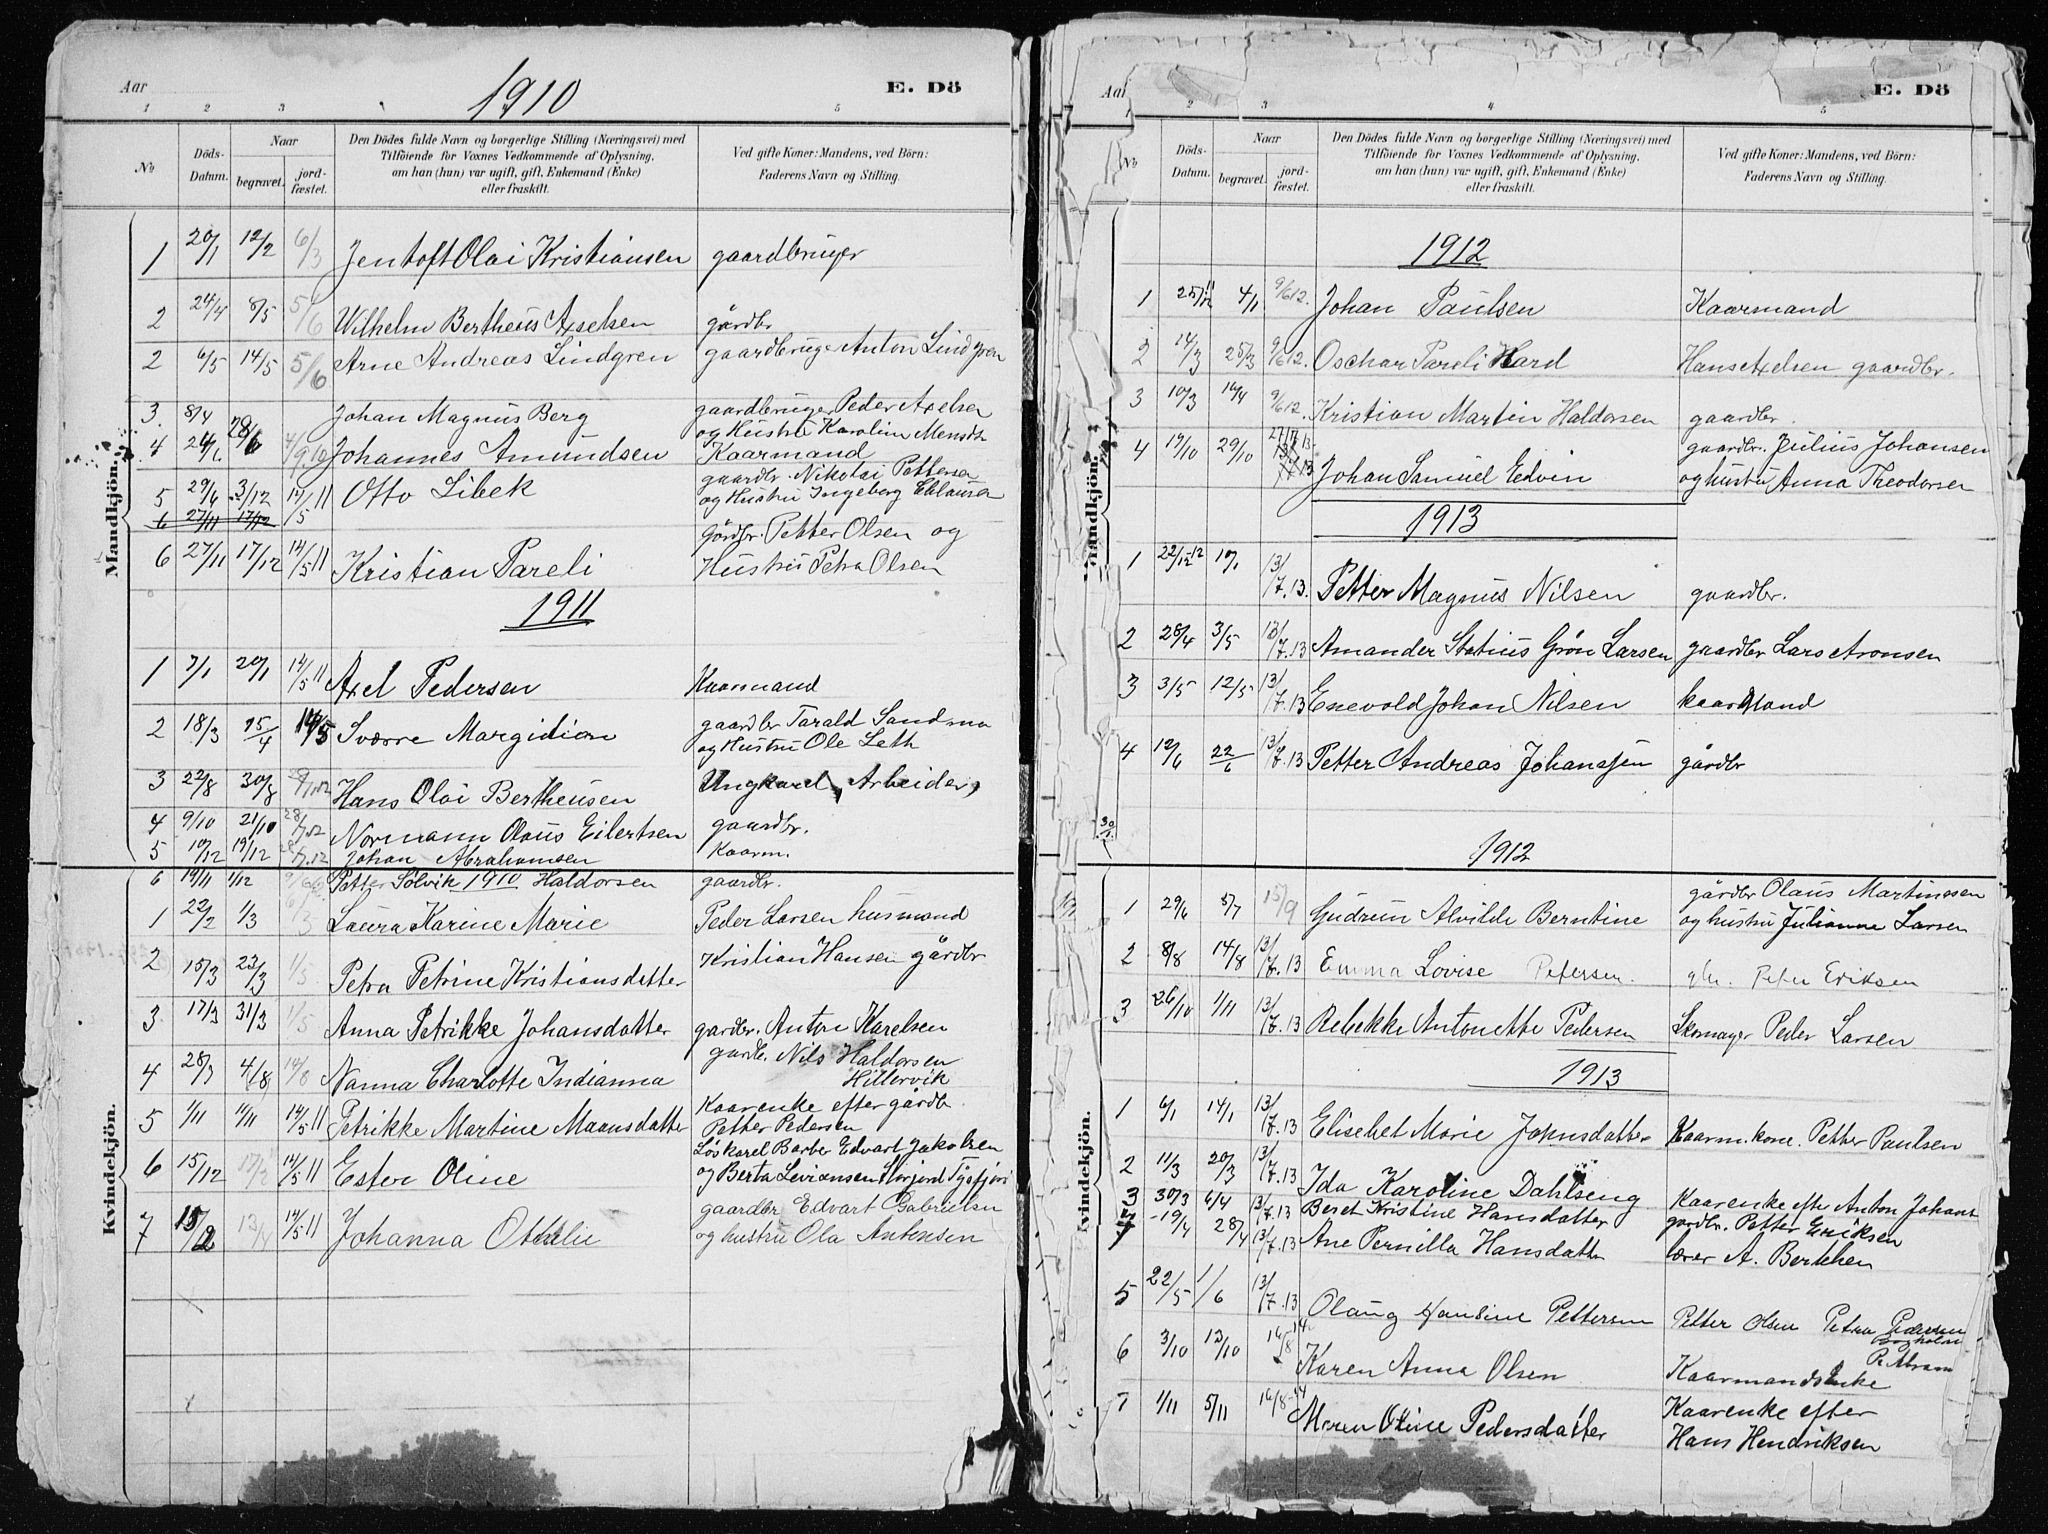 Aar
1910
E. Dö
1 2 3 5
No
Döds-Datum.
Naar
begravet.
jord-fæstet.
Den Dödes fulde Navn og borgerlige Stilling (Næringsvei) med
Tilföiende for Voxnes Vedkommende af Oplysning,
om han (hun) var ugift, gift, Enkemand (Enke)
eller fraskilt.
Ved gifte Koner: Mandens, ved Börn:
Faderens Navn og Stilling.
Mandkjön.
1 20/1 12/2 6/3 Jentoft Olai Kristiansen gaardbruger
2 24/4 8/5 5/6 Wilhelm Bertheus Axelsen gårdbr
2 6/5 14/5 5/6 Arne Andreas Lindgren gaardbruger Anton Lindgren
3. 8/4 Johan Magnus Berg gaardbruger Peder Axelsen
og Hustru Karolin
4 28/6 Johannes Amundsen Kaarmand
5 29/6 3/12 14/5 11 Otto Libek gaardbr. Nikolai Pettersen
og Hustru Ingeberg
6 27/11 17/12
6 27/11 17/12 14/5 11 Kristian Pareli gårdbr. Petter Olsen og
Hustru Petra Olsen
1911
1 7/1 20/1 14/5 11 Axel Pedersen Kaarmand
2 18/3 25/4 14/5 Sverre Margidion gaardbr Tarald Sandmo
og Hustru Ole Leth
3 22/8 30/8 Hans Olai Bertheusen Ungkarl, Arbeider,
4 9/10 21/10 Normann Olaus Eilertsen gaardbr.
5 10/12 19/12 Johan Abrahamsen Kaarm.
6 19/11 1/12 Petter Solvik Haldorsen gaardbr.
1910
Kvindekjön.
1 22/2 1/3 6/3 Laura Karine Marie Peder Larsen husmand
2 15/3 23/3 1/5 Petra Petrine Kristiansdatter Kristian Hansen gårdbr
3 17/3 31/3 1/5 Anna Petrikke Johansdatter gardbr. Anton Karelsen
4 28/7 4/8 14/8 Nanna Charlotte Indianna gardbr. Nils Haldorsen
Hillervik
5 1/11 11/11 14/5 11 Petrikke Martine Maansdatter Kaarenke efter gårdb.
Petter Pedersen
6 15/12 17/12 14/5 11 Ester Oline Løskarel Barber Edvart Jakobsen
og Berta Leviansen Storjord Tysfjord
7 15/12 14/5 11 Johanna Othelie gaardbr Edvart Gabrielsen
og hustru Ola Antonsen
Aar
E. Dö
2 3 4 5
No
Döds-Datum.
Naar
begravet.
jord-fæstet.
Den Dödes fulde Navn og borgerlige Stilling (Næringsvei) med
Tilföiende for Voxnes Vedkommende af Oplysning,
om han (hun) var ugift, gift, Enkemand (Enke)
eller fraskilt.
Ved gifte Koner: Mandens, ved Börn:
Faderens Navn og Stilling.
Mandkjön.
1912
1 4/1 9/6 12. Johan Paulsen Kaarmand
2 14/3 25/3 9/6 12. Oschar Pareli Hard Hans Axelsen gaardbr.
3 10/3 14/4 9/6 12. Kristian Martin Haldorsen gaardbr.
4 19/10 29/10 Johan Samuel Edvin gaardbr. Julius Johansen
og hustru Anna Theodorsen
1913
1 22/12 12 10/1 13/7.13. Petter Magnus Nilsen gaardbr.
2 28/4 3/5 13/7.13 Amandus Statius Grøn Larsen gaardbr Lars Aronsen
3 3/5 12/5 13/7.13 Enevold Johan Nilsen kaarmand
4 12/6 22/6 13/7.13 Petter Andreas Johansen gårdbr
1912
Kvindekjön.
1 29/6 5/7 15/9 Gudrun Alvilde Berntine gårdbr Olaus Martinssen
og hustru Julianne Larsen
2 8/8 14/8 13/7.13 Emma Lovise Petersen. Peter Eriksen
3 26/10 1/11 13/7.13 Rebekke Antonette Pedersen Skomager Peder Larsen
1913
1 6/1 14/1 13/7.13 Elisebet Marie Johnsdatter Kaarm.kone. Petter Paulsen
2 11/3 20/3 13/7.13 Ida Karoline Dahlseng Kaarenke efte Anton Johans
3 30/3 6/4 13/7.13 Beret Kristine Hansdatter gardbr. Petter Eriksen
4 19/4 28/4 13/7.13 Ane Pernilla Hansdatter lærer A. Berthen
5 22/5 1/6 13/7.13 Olaug Hansine Pettersen Petter Olsen Petra Pedersen
6 3/10 12/10 Karen Anna Olsen Kaarmandsenke
7 1/11 5/11 16/8-14 Maren Oline Pedersdatter Kaarenke efter
Hans Hendriksen